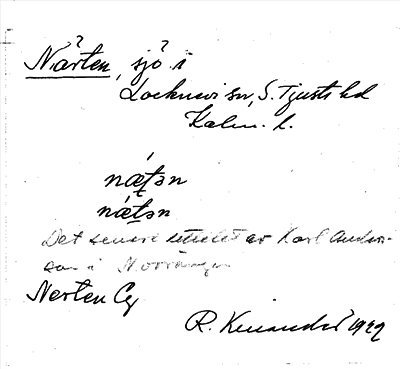 Närten, sjö i
Locknevi sn, S. Tjusts hd
Kalm. l.
næ̀t̬ən
nǽt̬ən
Det senare uttalet av Karl Anders-
son i Norrängen
Nerten Cg
R. Kinander 1929